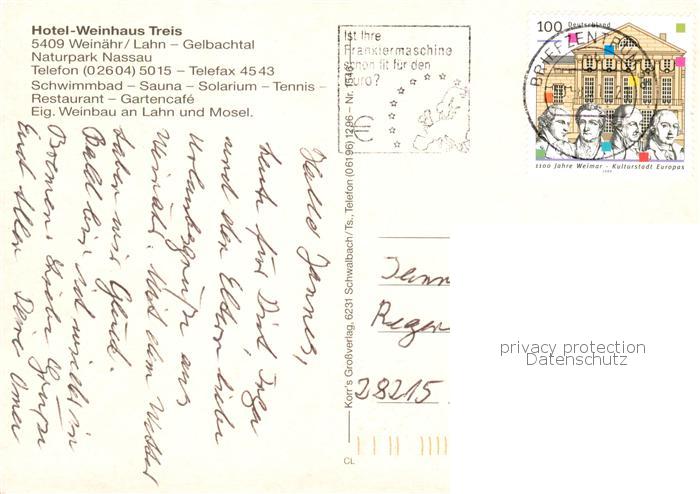 Hotel-Weinhaus Treis
5409 Weinähr/Lahn – Gelbachtal
Naturpark Nassau
Telefon (02604) 5015 – Telefax 4543
Schwimmbad – Sauna – Solarium – Tennis –
Restaurant – Gartencafé
Eig. Weinbau an Lahn und Mosel.
Ist Ihre
Frankiermaschine
schon fit für den
Euro?
100 Deutschland
BRIEFZENTRUM
1100 Jahre Weimar - Kulturstadt Europas
1999
Hallo Jannes,
heute für Dich
und den Eltern liebe
Urlaubsgrüße aus
Weinähr. Mit dem Wetter
haben wir Glück.
Bald bin ich wieder in
Bremen. Liebe Grüße
Euch allen Deine Oma
Korr's Großverlag, 6231 Schwalbach/Ts., Telefon (06196) 1296 – Nr. 1546
Jann
Regen
28215
CL
privacy protection
Datenschutz